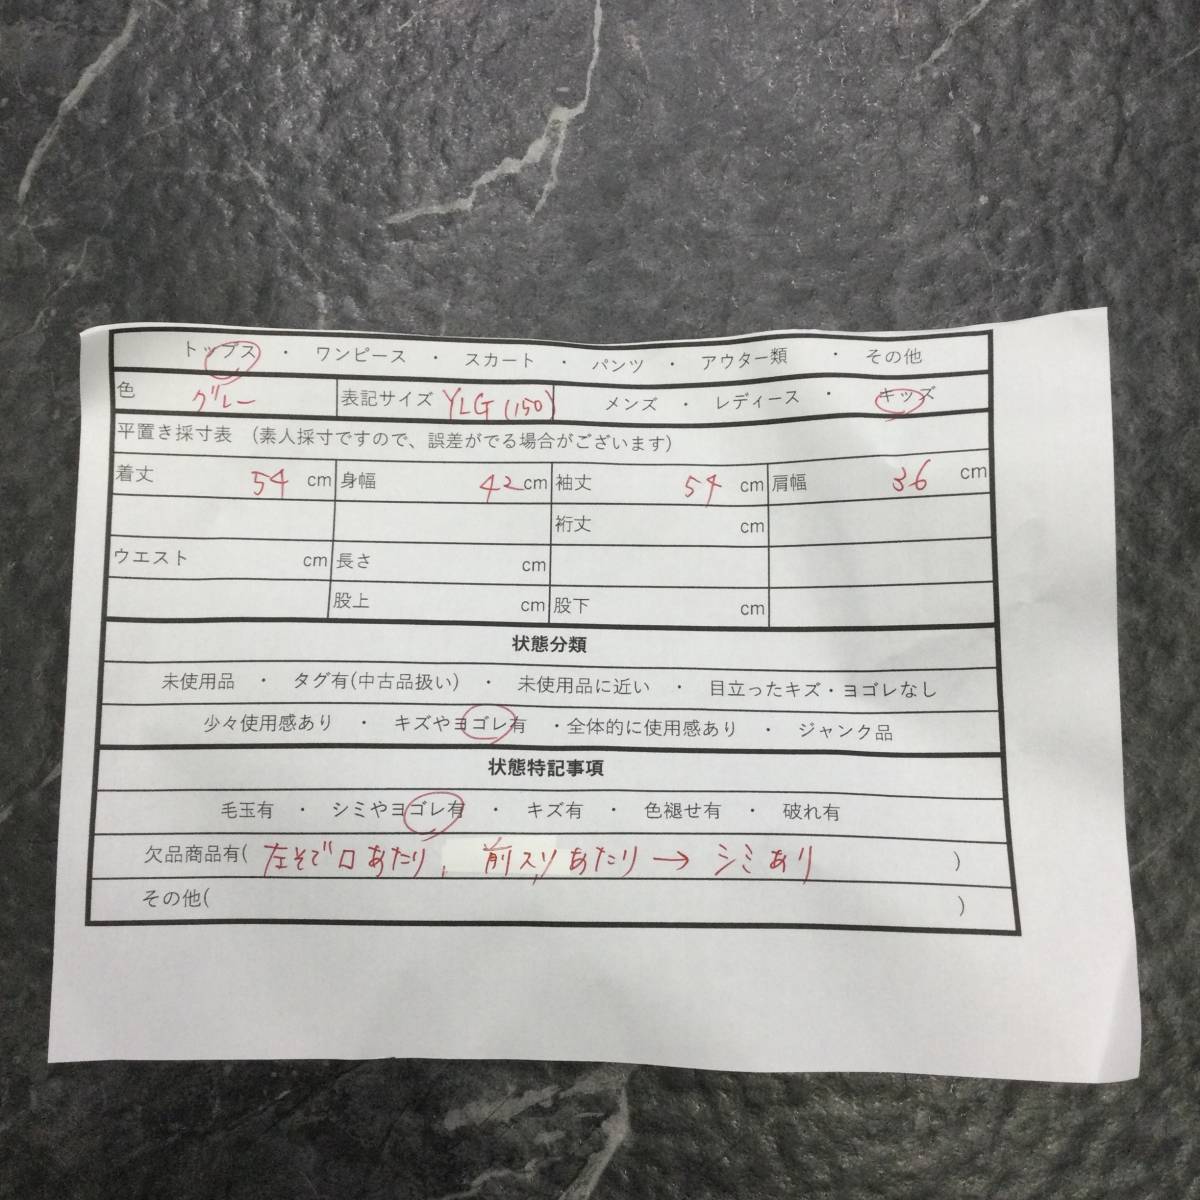 トップス ・ ワンピース ・ スカート ・ パンツ ・ アウター類 ・ その他
色 グレー 表記サイズ YLG (150) メンズ ・ レディース ・ キッズ
平置き採寸表 (素人採寸ですので、誤差がでる場合がございます)
着丈 54 cm 身幅 42 cm 袖丈 54 cm 肩幅 36 cm
裄丈 cm
ウエスト cm 長さ cm
股上 cm 股下 cm
状態分類
未使用品 ・ タグ有(中古品扱い) ・ 未使用品に近い ・ 目立ったキズ・ヨゴレなし
少々使用感あり ・ キズやヨゴレ有 ・全体的に使用感あり ・ ジャンク品
状態特記事項
毛玉有 ・ シミやヨゴレ有 ・ キズ有 ・ 色褪せ有 ・ 破れ有
欠品商品有( 左そで口あたり、前スソあたり → シミあり )
その他( )